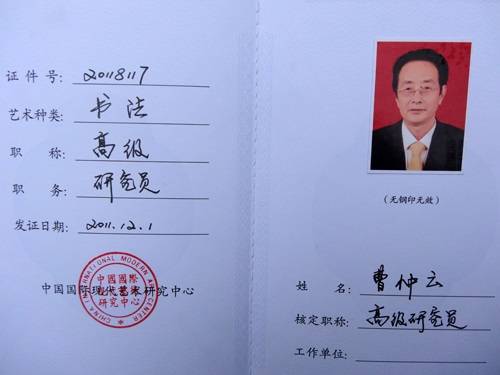 证 件 号: 20118117
艺术种类: 书法
职 称: 高级
职 务: 研究员
发证日期: 2011.12.1
中国国际现代艺术研究中心
CHINA INTERNATIONAL MODERN ART CENTER
中國國際
現代藝術
研究中心
(无钢印无效)
姓 名: 曹仲云
核定职称: 高级研究员
工作单位: